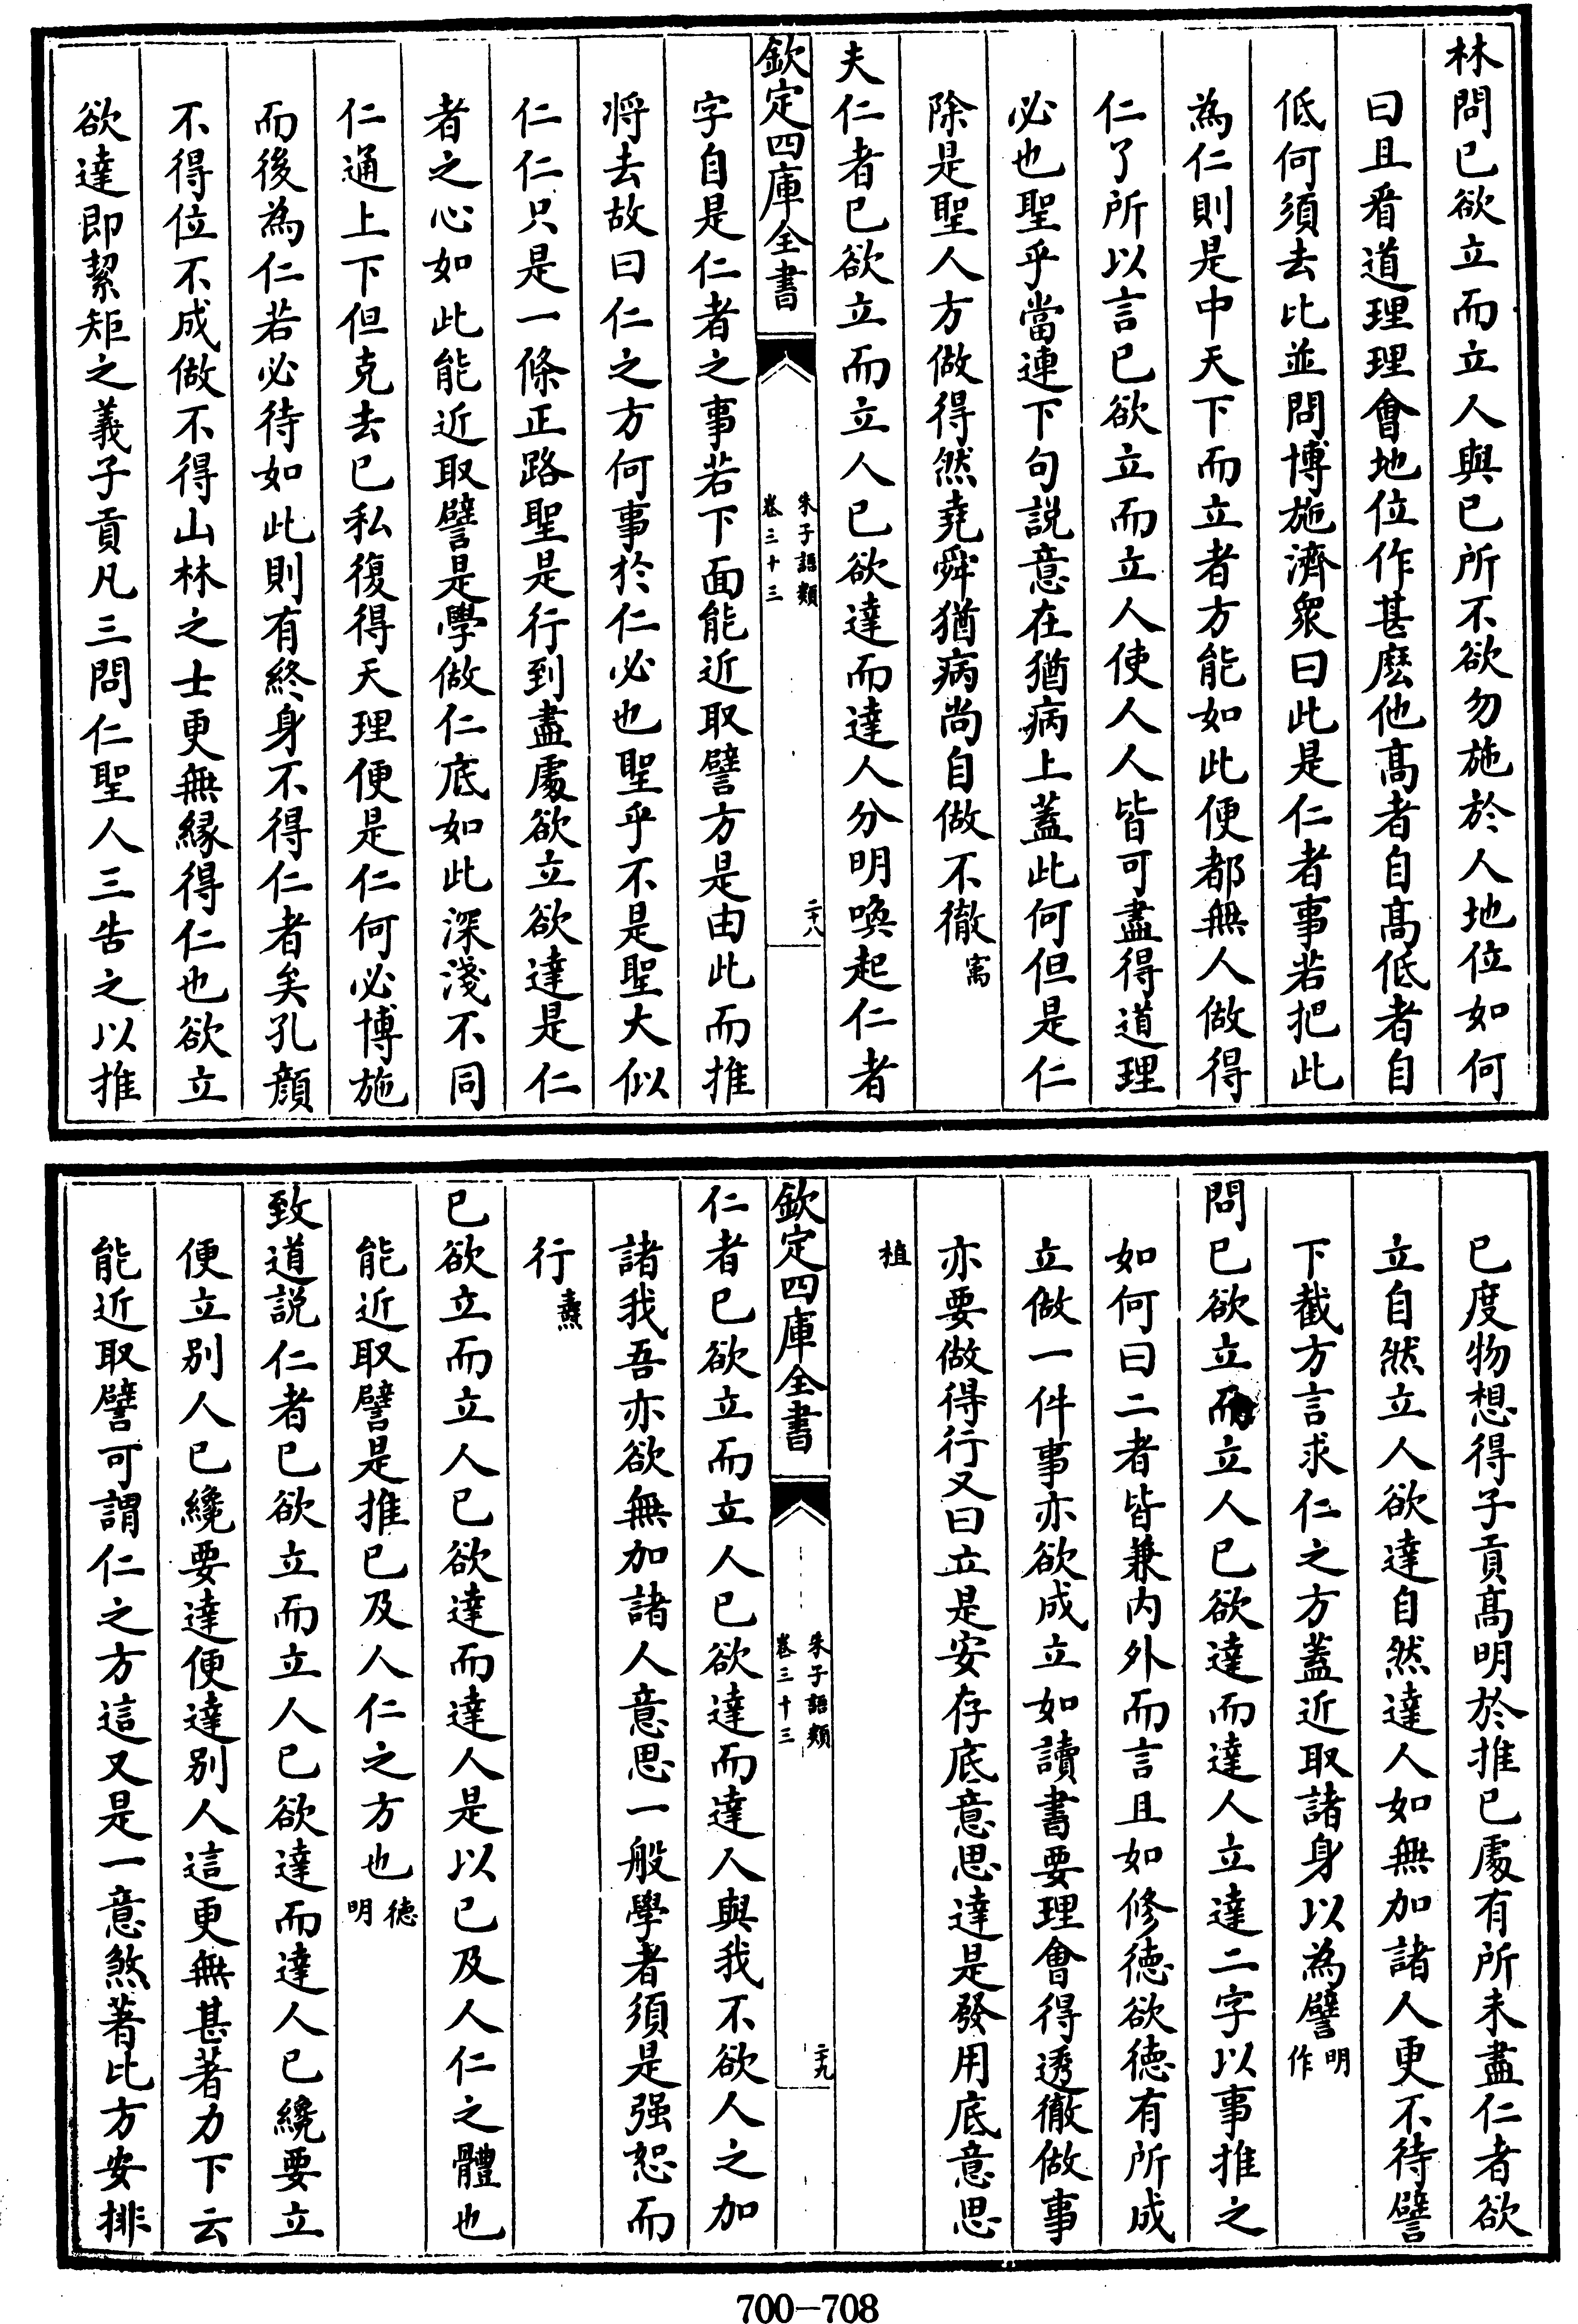 林問已欲立而立人與已所不欲勿施於人地位如何
曰且看道理理會地位作甚麽他髙者自髙低者自
低何須去比並問博施濟衆曰此是仁者事若把此
為仁則是中天下而立者方能如此便都無人做得
仁了所以言已欲立而立人使人人皆可盡得道理
必也聖乎當連下句説意在猶病上蓋此何但是仁
除是聖人方做得然堯舜猶病尚自做不徹㝢
夫仁者已欲立而立人已欲達而達人分明喚起仁者
欽定四庫全書
朱子語類
卷三十三
二十八
字自是仁者之事若下面能近取譬方是由此而推
将去故曰仁之方何事於仁必也聖乎不是聖大似
仁仁只是一條正路聖是行到盡處欲立欲達是仁
者之心如此能近取譬是學做仁底如此深淺不同
仁通上下但克去已私復得天理便是仁何必博施
而後為仁若必待如此則有終身不得仁者矣孔顔
不得位不成做不得山林之士更無縁得仁也欲立
欲達即絜矩之義子貢凡三問仁聖人三告之以推
已度物想得子貢髙明於推已處有所未盡仁者欲
立自然立人欲達自然達人如無加諸人更不待譬
下截方言求仁之方蓋近取諸身以為譬明作
問已欲立而立人已欲達而達人立達二字以事推之
如何曰二者皆兼内外而言且如修徳欲徳有所成
立做一件事亦欲成立如讀書要理會得透徹做事
亦要做得行又曰立是安存底意思達是發用底意思
植
欽定四庫全書
朱子語類
卷三十三
二十九
仁者已欲立而立人已欲達而達人與我不欲人之加
諸我吾亦欲無加諸人意思一般學者須是强恕而
行燾
已欲立而立人已欲達而達人是以已及人仁之體也
能近取譬是推已及人仁之方也徳明
致道説仁者已欲立而立人已欲達而達人已纔要立
便立别人已纔要達便達别人這更無甚著力下云
能近取譬可謂仁之方這又是一意煞著比方安排
700-708